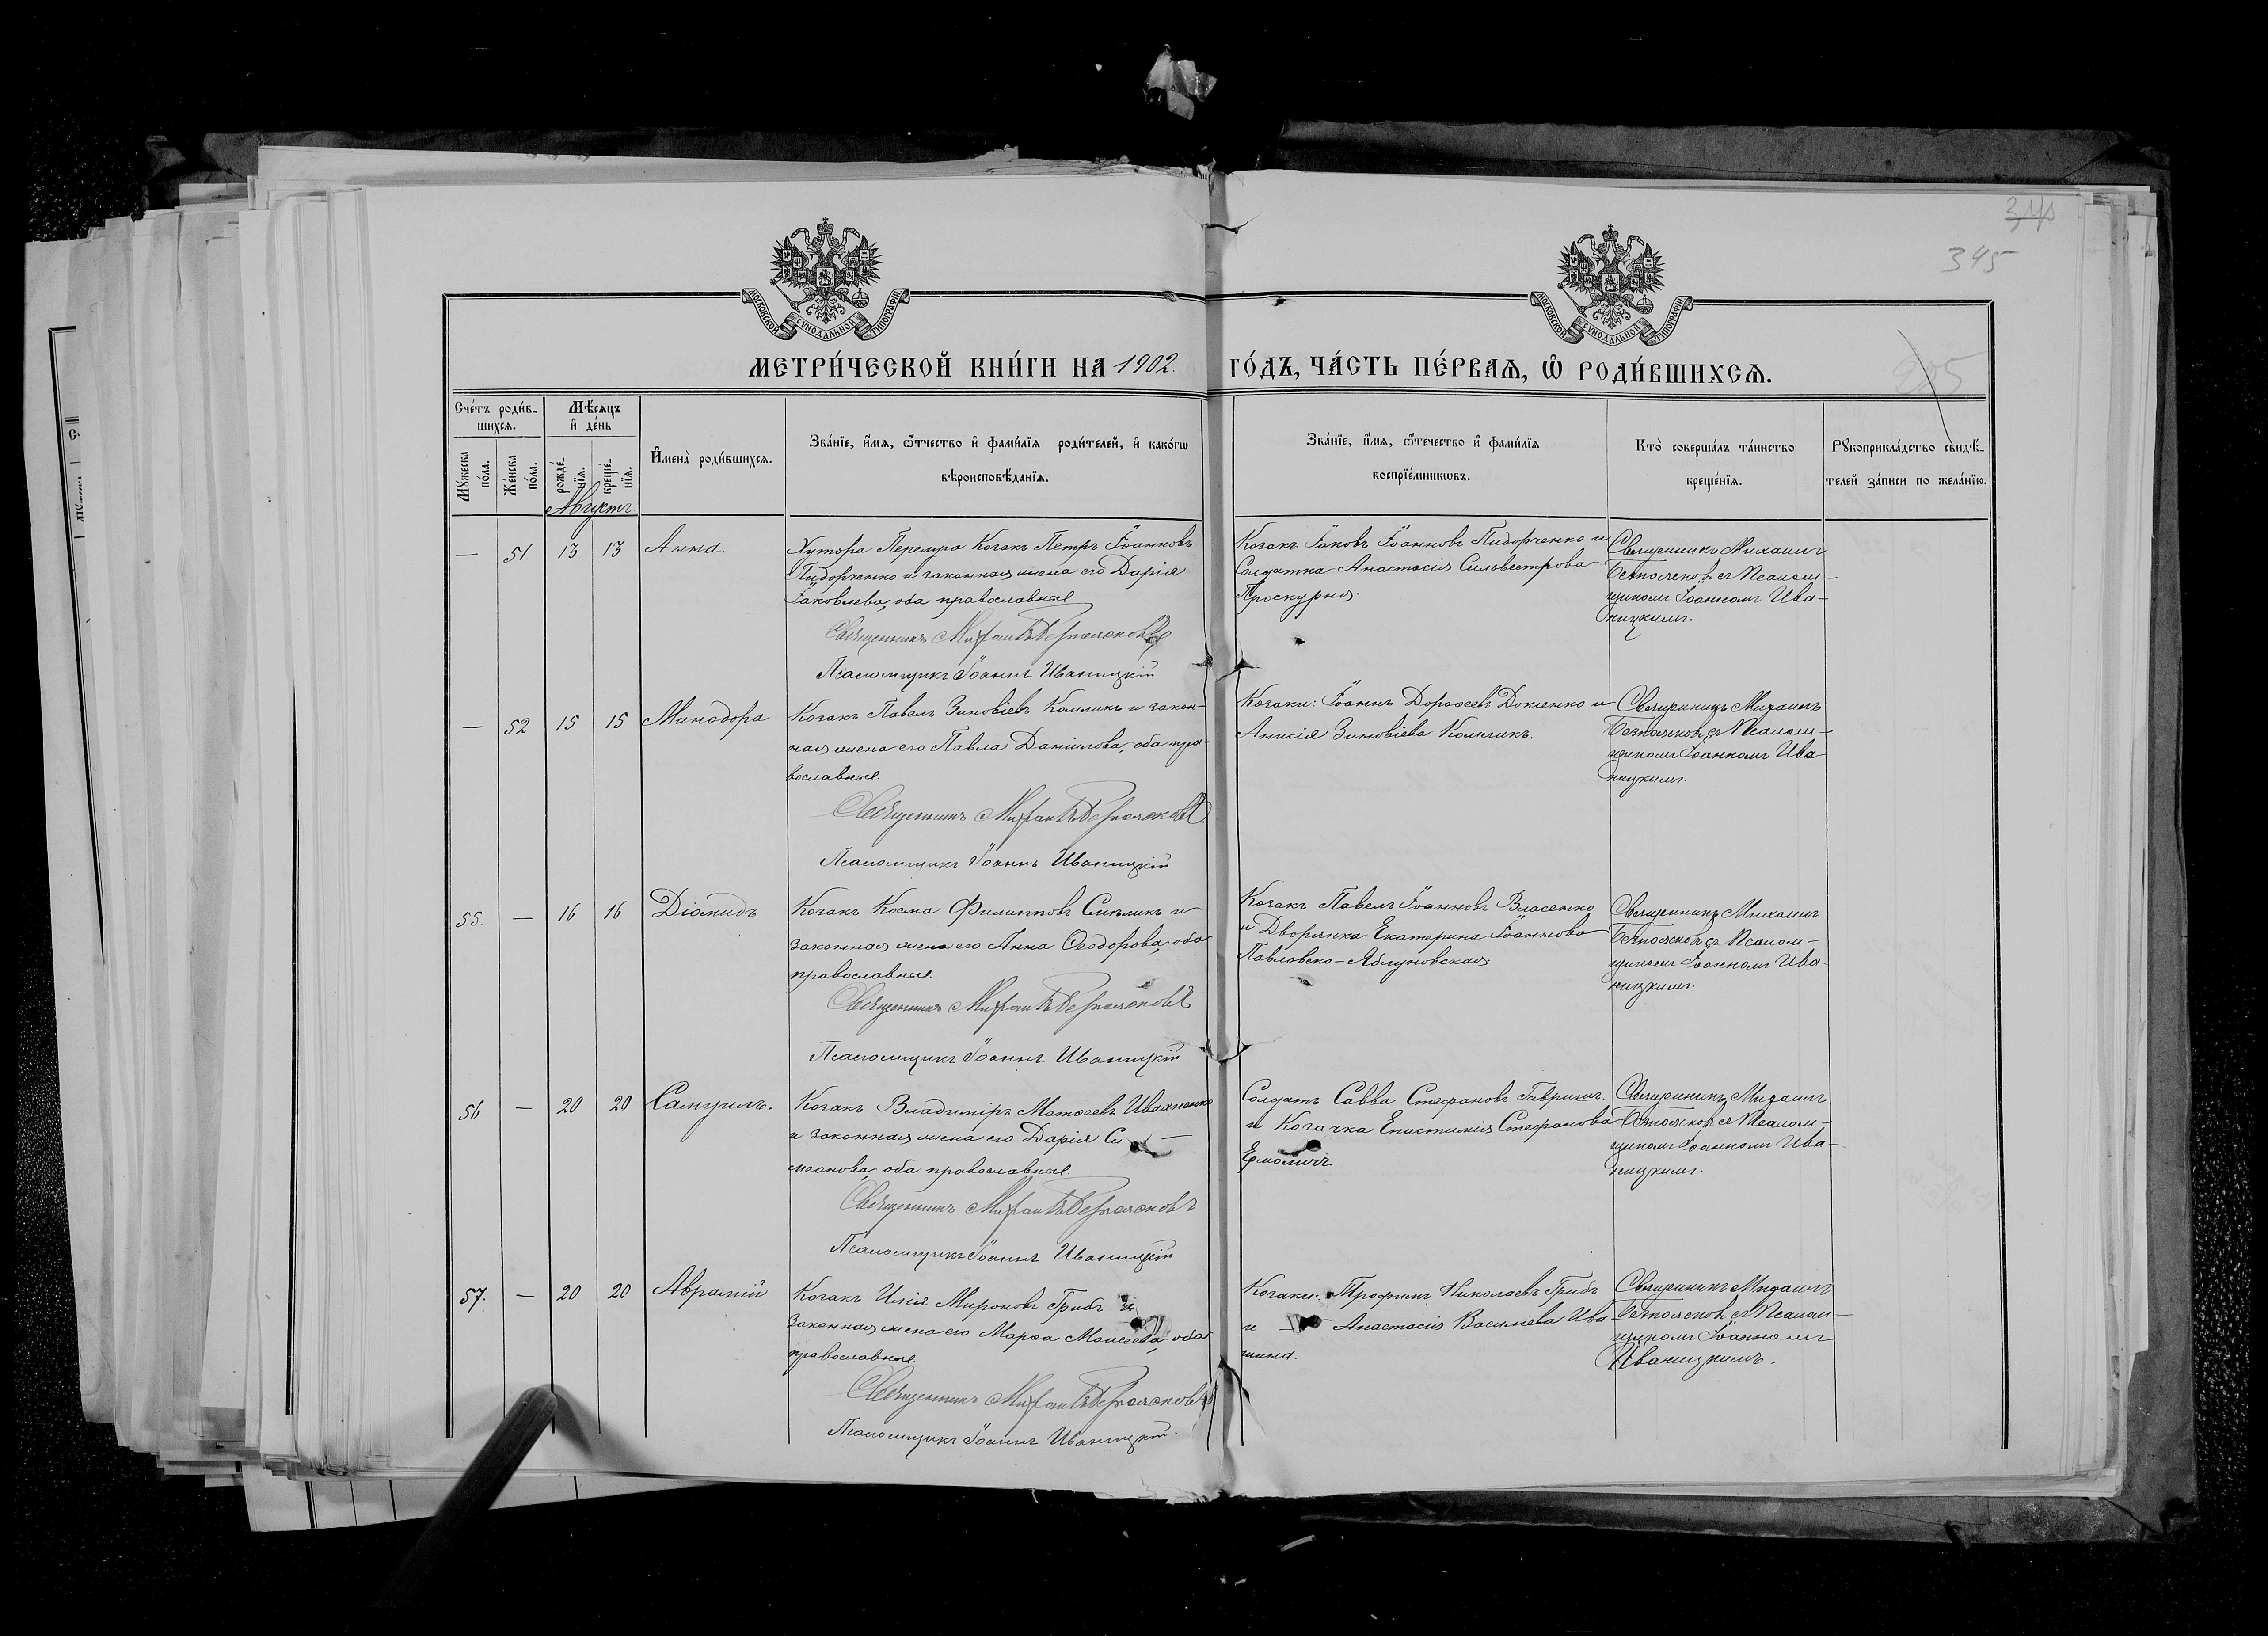 340
345
205
МОСКОВСКОЙ СѴНОДАЛЬНОЙ ТИПОГРАФІИ
МОСКОВСКОЙ СѴНОДАЛЬНОЙ ТИПОГРАФІИ
МЕТРИ́ЧЕСКОЙ КНИ́ГИ НА 1902. ГО́ДЪ, ЧА́СТЬ ПЕ́РВАѦ, Ѽ РОДИ́ВШИХСѦ.
Сче́тъ роди́в-
шихсѧ.
Мꙋ́жеска по́ла.
Же́нска по́ла.
Мѣ́сѧцъ и҆ де́нь
рожде́-нїѧ.
креще́-нїѧ.
Августъ.
И҆мена̀ роди́вшихсѧ.
Зва́нїе, и҆́мѧ, ѻ҆́тчество и҆ фами́лїѧ роди́телей, и҆ како́гѡ
вѣроисповѣ́данїѧ.
Зва́нїе, и҆́мѧ, ѻ҆́течество и҆ фами́лїѧ
воспрїе́мникѡвъ.
Кто̀ соверша́лъ та́инство
креще́нїѧ.
Рꙋкоприкла́дство свидѣ́-
телей за́писи по жела́нїю.
— 51. 13 13 Анна.
Хутора Перелура Козакъ Петръ Іоанновъ
Пидорченко и законная жена его Дарія
Іаковлева, оба православные
Священникъ Михаилъ Безпоясковъ
Псаломщикъ Іоаннъ Иваницкій
Козакъ Іаковъ Іоанновъ Пидорченко и
Солдатка Анастасія Сильвестрова
Проскурня.
Священникъ Михаилъ
Безпоясковъ съ Псалом-
щикомъ Іоанномъ Ива-
ницкимъ.
— 52 15 15 Минодора
Козакъ Павелъ Зиновіевъ Комликъ и закон-
ная жена его Павла Даніилова, оба пра-
вославные.
Священникъ Михаилъ Безпоясковъ
Псаломщикъ Іоаннъ Иваницкій
Козаки: Іоаннъ Дороѳеевъ Докіенко и
Анисія Зиновіева Комликъ.
Священникъ Михаилъ
Безпоясковъ съ Псалом-
щикомъ Іоанномъ Ива
ницкимъ.
55. — 16 16 Діомидъ
Козакъ Косма Филипповъ Смыликъ и
законная жена его Анна Ѳеодорова, оба
православные.
Священникъ Михаилъ Безпоясковъ
Псаломщикъ Іоаннъ Иваницкій
Козакъ Павелъ Іоанновъ Власенко
и Дворянка Екатерина Іоаннова
Павловско-Яблуновская.
Священникъ Михаилъ
Безпоясковъ съ Псалом-
щикомъ Іоанномъ Ива-
ницкимъ.
56 — 20 20 Самуилъ.
Козакъ Владиміръ Матѳеевъ Иваненко
и законная жена его Дарія Си-
меонова, оба православные.
Священникъ Михаилъ Безпоясковъ
Псаломщикъ Іоаннъ Иваницкій
Солдатъ Савва Стефановъ Гавришъ
и Козачка Епистимія Стефанова
Ермоличъ
Священникъ Михаилъ
Безпоясковъ съ Псалом-
щикомъ Іоанномъ Ива-
ницкимъ.
57. — 20 20 Аврамій
Козакъ Илія Мироновъ Грибъ и
Законная жена его Марѳа Моисеева, оба
православные.
Священникъ Михаилъ Безпоясковъ
Псаломщикъ Іоаннъ Иваницкій.
Козаки: Трофимъ Николаевъ Грибъ
и Анастасія Василіева Ива
шина.
Священникъ Михаилъ
Безпоясковъ съ Псалом-
щикомъ Іоанномъ
Иваницкимъ.